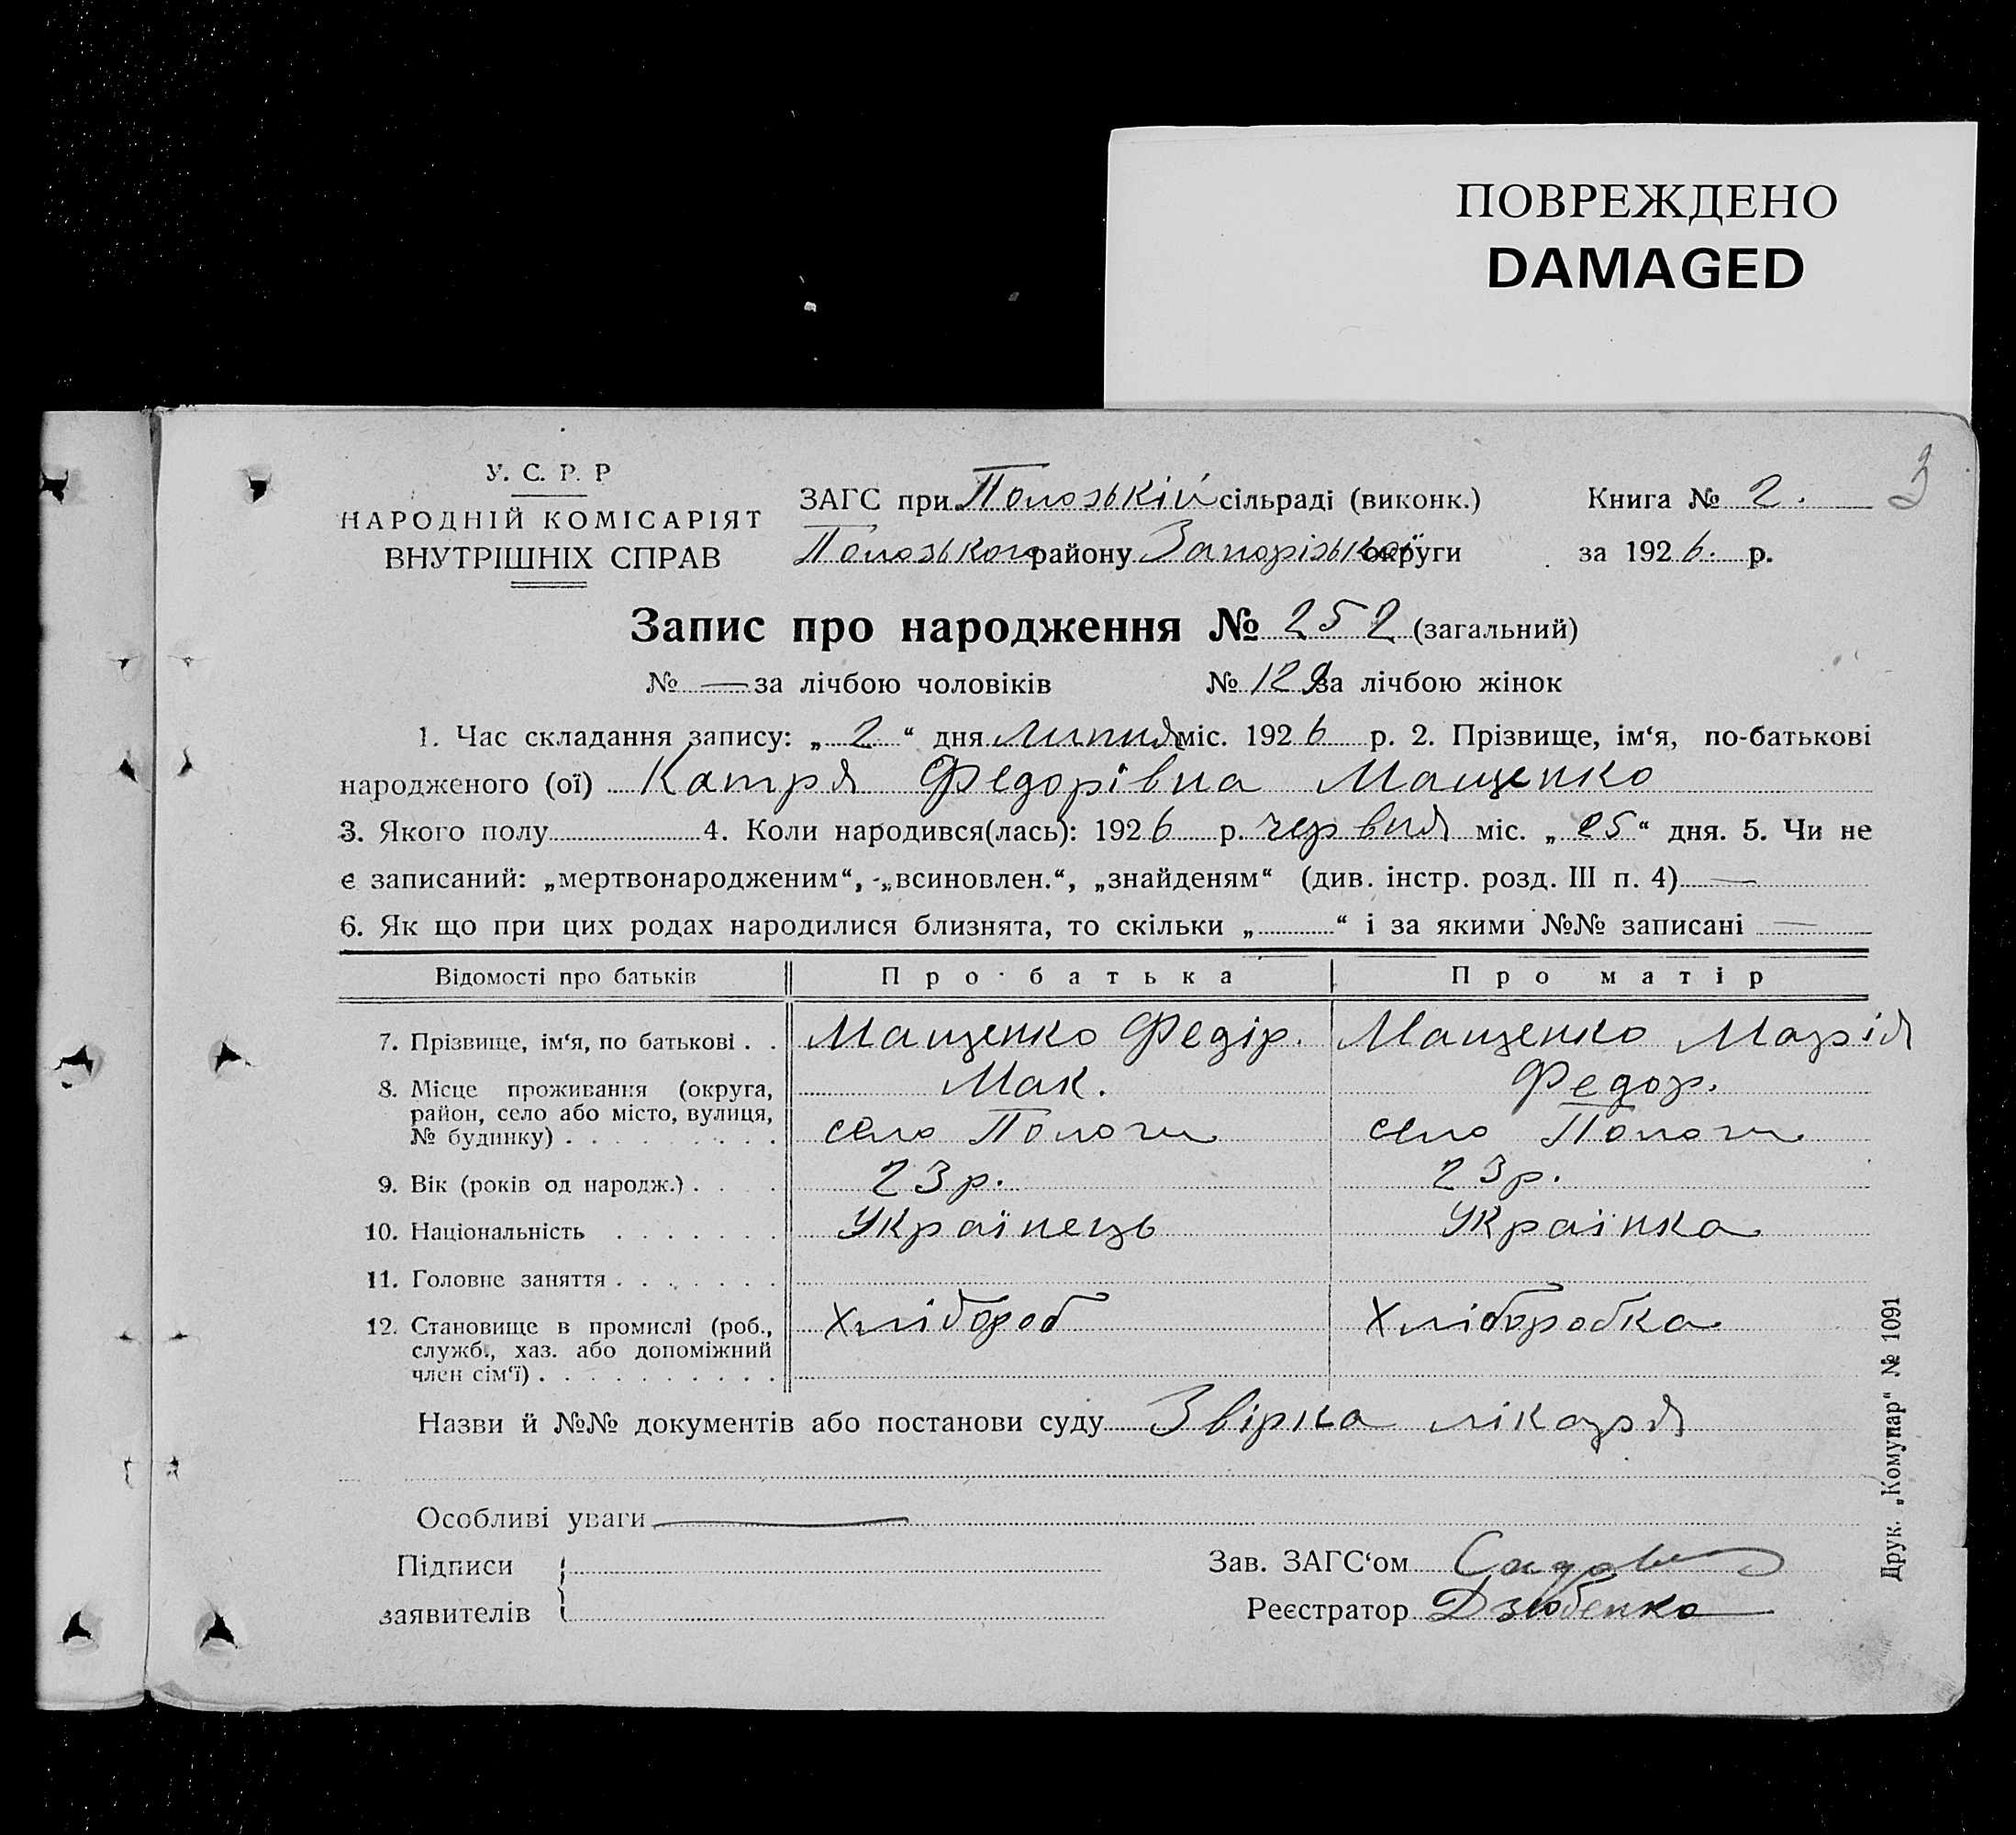 ПОВРЕЖДЕНО
DAMAGED
3
У. С. Р. Р
НАРОДНІЙ КОМІСАРІЯТ
ВНУТРІШНІХ СПРАВ
ЗАГС при Пологькій сільраді (виконк.)
Книга № 2.
Пологького району Запорізької округи
за 1926. р.
Запис про народження № 252 (загальний)
№ — за лічбою чоловіків № 129 за лічбою жінок
1. Час складання запису: „ 2 “ дня липня міс. 1926 р. 2. Прізвище, ім‘я, по-батькові
народженого (ої) Катря Федорівна Мащенко
3. Якого полу 4. Коли народився(лась): 1926 р. червня міс. „ 25 “ дня. 5. Чи не
є записаний: „мертвонародженим“, „всиновлен.“, „знайденям“ (див. інстр. розд. III п. 4) —
6. Як що при цих родах народилися близнята, то скільки „ “ і за якими №№ записані —
Відомості про батьків Про батька Про матір
7. Прізвище, ім‘я, по батькові . . Мащенко Федір. Мак. Мащенко Марія Федор.
8. Місце проживання (округа,
район, село або місто, вулиця,
№ будинку) . . . . . . . . . село Пологи село Пологи
9. Вік (років од народж.) . . . 23 р. 23 р.
10. Національність . . . . . . . Українець Українка
11. Головне заняття . . . . . . .
12. Становище в промислі (роб., Хлібороб Хліборобка
служб., хаз. або допоміжний
член сім‘ї) . . . . . . . . . .
Назви й №№ документів або постанови суду Звірка лікаря
Особливі уваги —
Підписи
заявителів
Зав. ЗАГС‘ом
Реєстратор Дзюбенко
Друк. „Комунар“ № 1091